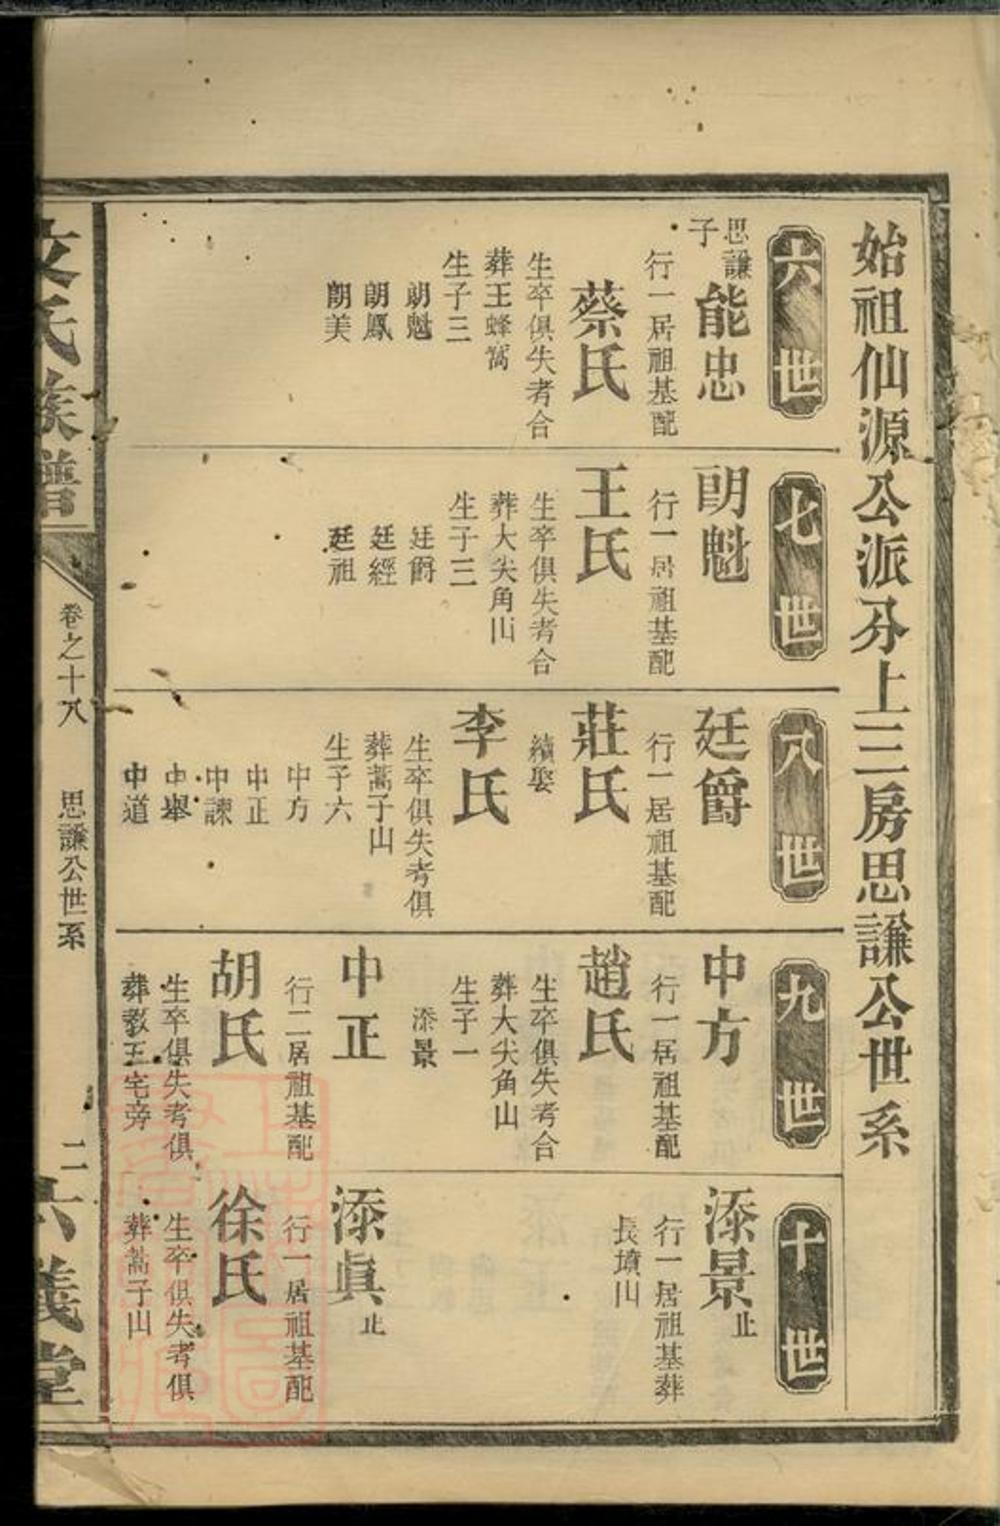 始祖仙源公派分上三房思謙公世系
六世
思謙子
能忠
行一居祖基配
蔡氏
生卒俱失考合
葬王蜂窩
生子三
朗魁
朗鳳
朗美
七世
朗魁
行一居祖基配
王氏
生卒俱失考合
葬大尖角山
生子三
廷爵
廷經
廷祖
八世
廷爵
行一居祖基配
莊氏
續娶
李氏
生卒俱失考俱
葬蒿子山
生子六
中方
中正
中諫
中舉
中道
九世
中方
行一居祖基配
趙氏
生卒俱失考合
葬大尖角山
生子一
添景
中正
行二居祖基配
胡氏
生卒俱失考俱
葬教王宅旁
十世
添景止
行一居祖基葬
長墳山
添眞止
行一居祖基配
徐氏
生卒俱失考俱
葬蒿子山
文氏族譜
卷之十八
思謙公世系
二
六義堂